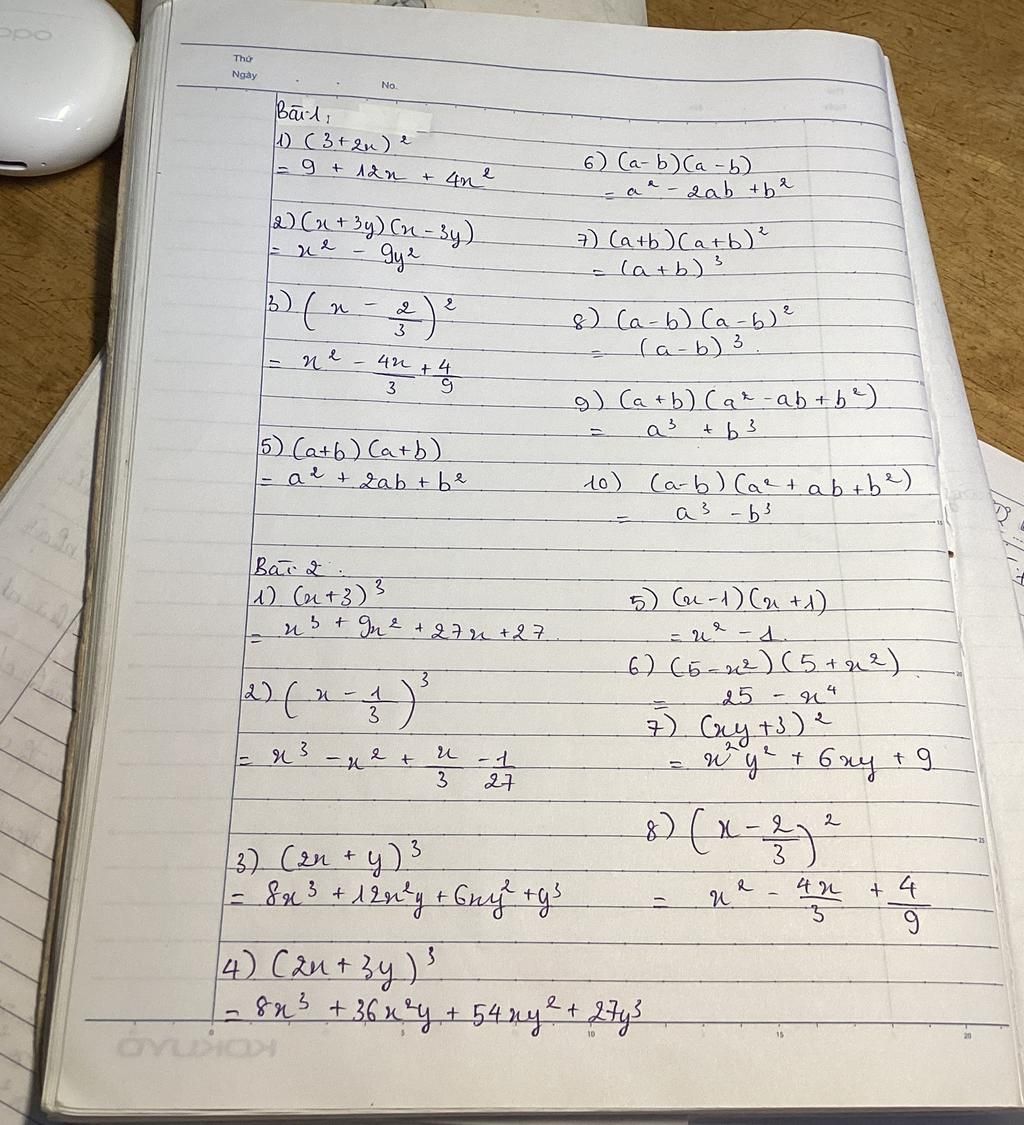 oppo
Thứ
Ngày
No.
Bài 1:
1) (3+2x)²
= 9 + 12x + 4x²
2) (x+3y)(x-3y)
= x² - 9y²
3) (x - 2/3)²
= x² - 4x/3 + 4/9
5) (a+b)(a+b)
= a² + 2ab + b²
6) (a-b)(a-b)
= a² - 2ab + b²
7) (a+b)(a+b)²
= (a+b)³
8) (a-b)(a-b)²
= (a-b)³.
9) (a+b)(a²-ab+b²)
= a³ + b³
10) (a-b)(a²+ab+b²)
= a³ - b³
Bài 2.
1) (x+3)³
= x³ + 9x² + 27x + 27
2) (x - 1/3)³
= x³ - x² + x/3 - 1/27
3) (2x + y)³
= 8x³ + 12x²y + 6xy² + y³
4) (2x + 3y)³
= 8x³ + 36x²y + 54xy² + 27y³
5) (x-1)(x+1)
= x² - 1.
6) (5-x²)(5+x²)
= 25 - x⁴
7) (xy+3)²
= x²y² + 6xy + 9
8) (x - 2/3)²
= x² - 4x/3 + 4/9
0 5 10 15 20
KOKUYO